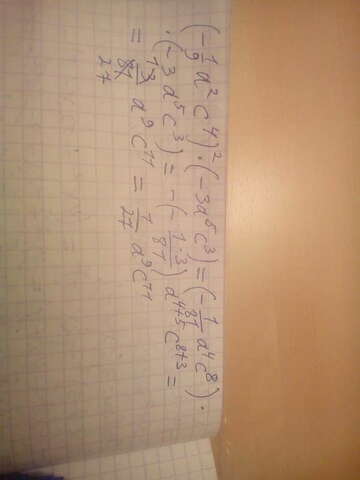 (-1/9 a²c⁴)² · (-3a⁵c³) = (-1/81 a⁴c⁸) ·
· (-3a⁵c³) = -(-1·3/81) a⁴⁺⁵c⁸⁺³ =
= 13/81 27 a⁹c¹¹ = 1/27 a⁹c¹¹